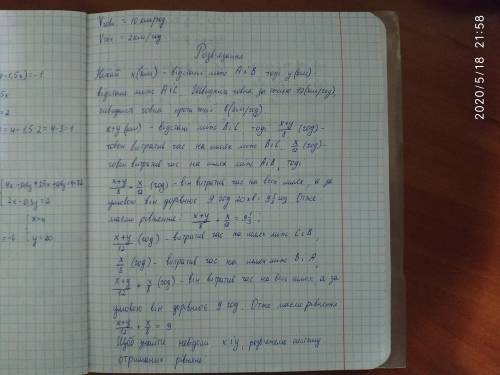 V човн. = 10 км/год
V теч. = 2 км/год
Розв'язання
Нехай x(км) - відстань між A і B, тоді y(км) -
відстань між A і C. Швидкість човна за течією 12(км/год)
швидкість човна проти течії 8(км/год)
x+y (км) - відстань між B і C, тоді (x+y)/8 (год) -
човен витратив час на шлях між B і C, x/12 (год) -
човен витратив час на шлях між A і B, тоді
(x+y)/8 + x/12 (год) - він витратив час на весь шлях, а за
умовою він дорівнює 9 год 20 хв = 9 1/3 год. Отже
маємо рівняння: (x+y)/8 + x/12 = 9 1/3
(x+y)/12 (год) - витратив час на шлях між C і B,
x/8 (год) - витратив час на шлях між B і A,
(x+y)/12 + x/8 (год) - він витратив час на весь шлях, а за
умовою він дорівнює 9 год. Отже маємо рівняння
(x+y)/12 + x/8 = 9
Щоб знайти невідомі x і y, розв'яжемо систему
отриманих рівнянь:
-1,5x) = -1
5x
= 2
= 4 - 1,5·2 = 4 - 3 = 1
x = 4
y = 20
2020/5/18 21:58